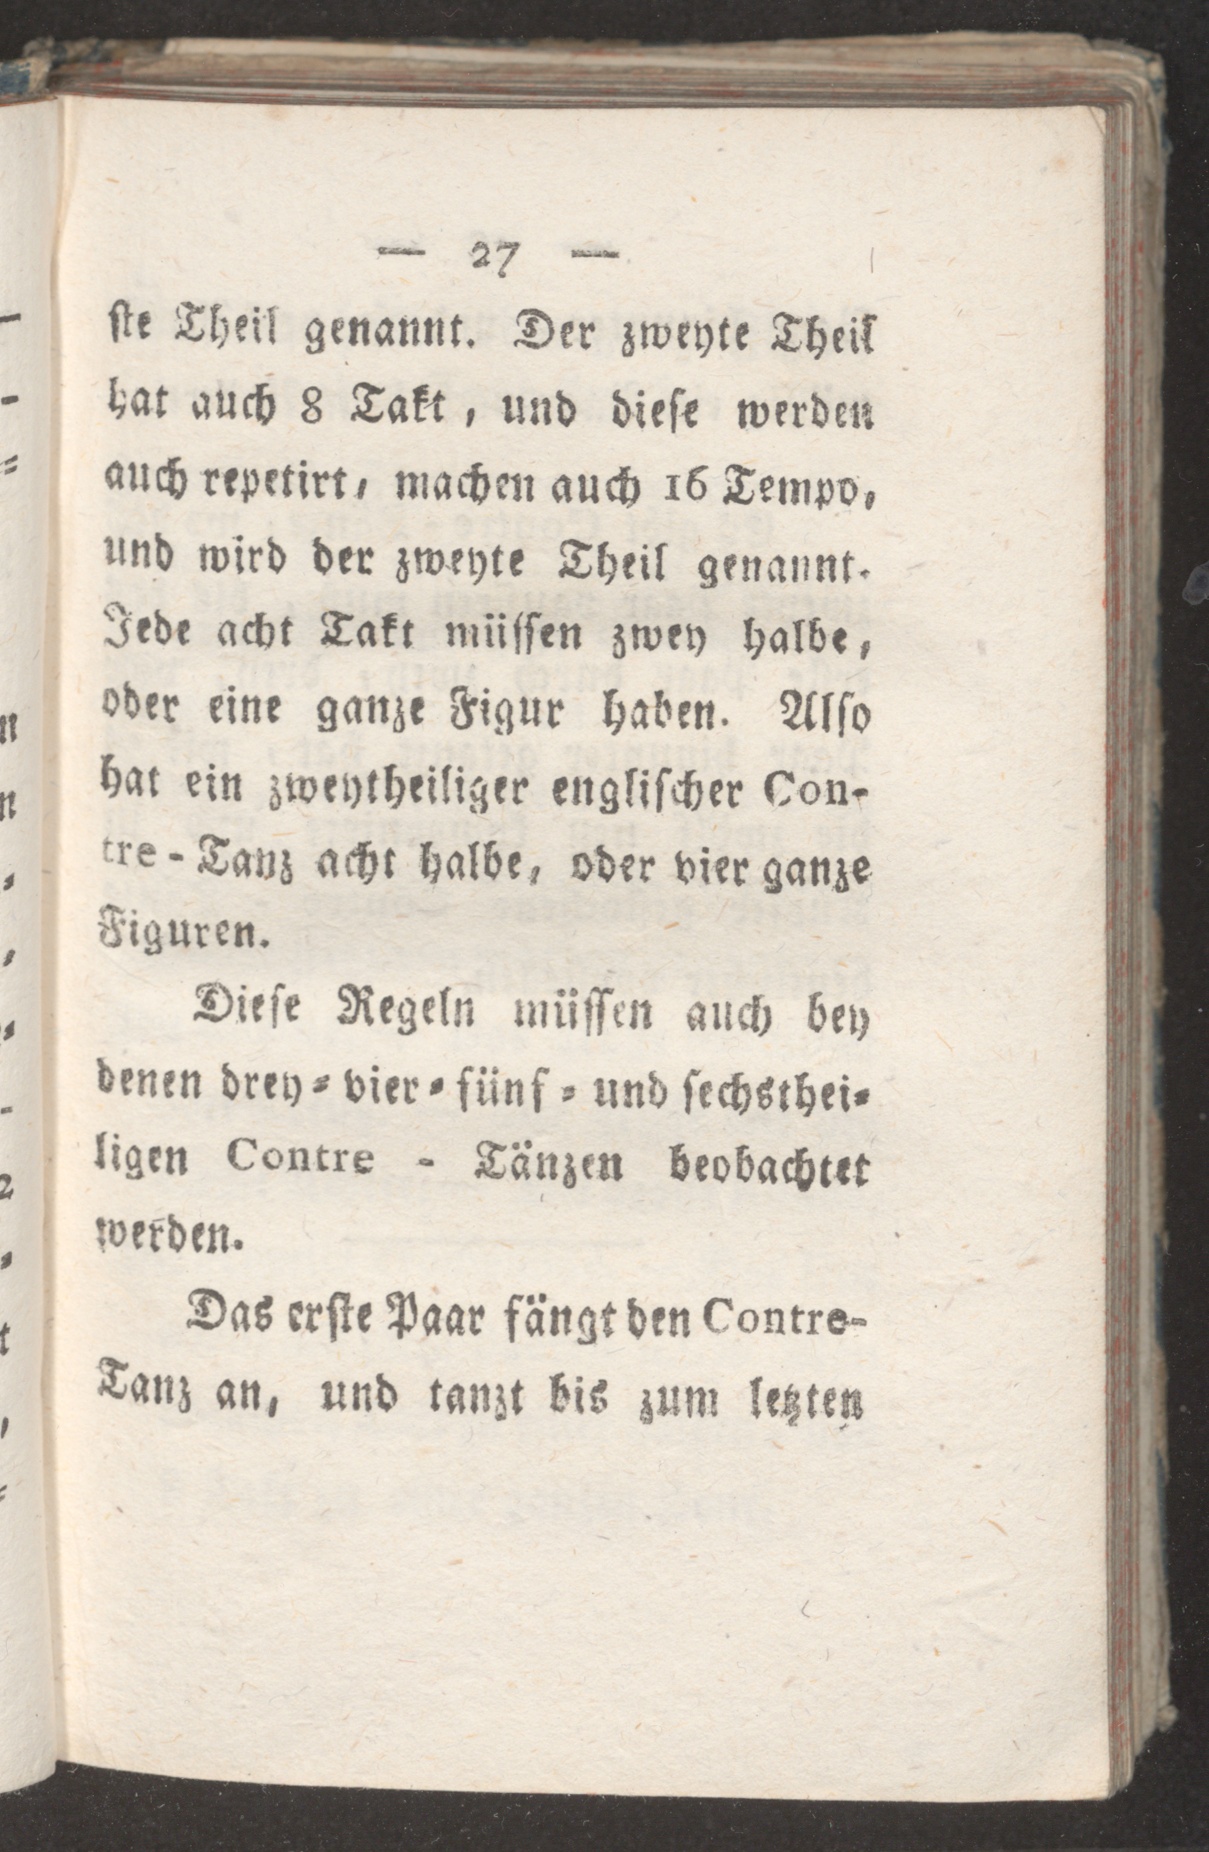 — 27 —
ſte Theil genannt. Der zweyte Theil
hat auch 8 Takt, und dieſe werden
auch repetirt, machen auch 16 Tempo,
und wird der zweyte Theil genannt.
Jede acht Takt müſſen zwey halbe,
oder eine ganze Figur haben. Alſo
hat ein zweytheiliger engliſcher Con-
tre-Tanz acht halbe, oder vier ganze
Figuren.
Dieſe Regeln müſſen auch bey
denen drey- vier- fünf- und ſechsthei-
ligen Contre - Tänzen beobachtet
werden.
Das erſte Paar fängt den Contre-
Tanz an, und tanzt bis zum letzten